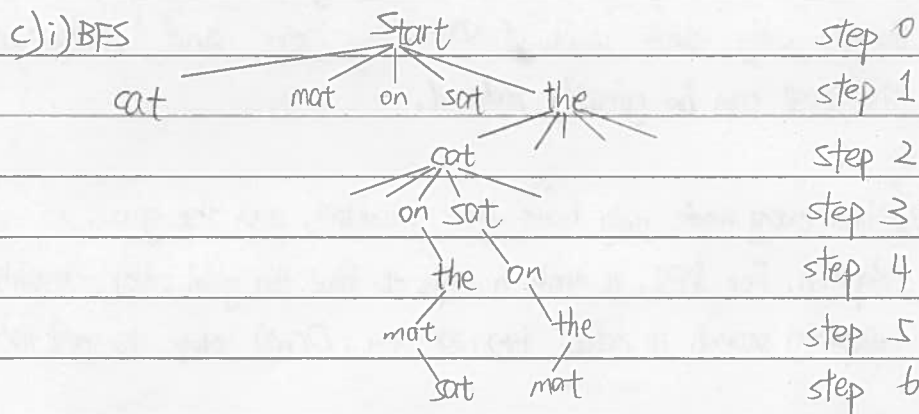 c) i) BFS Start step 0
cat mat on sat the step 1
cat step 2
on sat step 3
the on step 4
mat the step 5
sat mat step 6